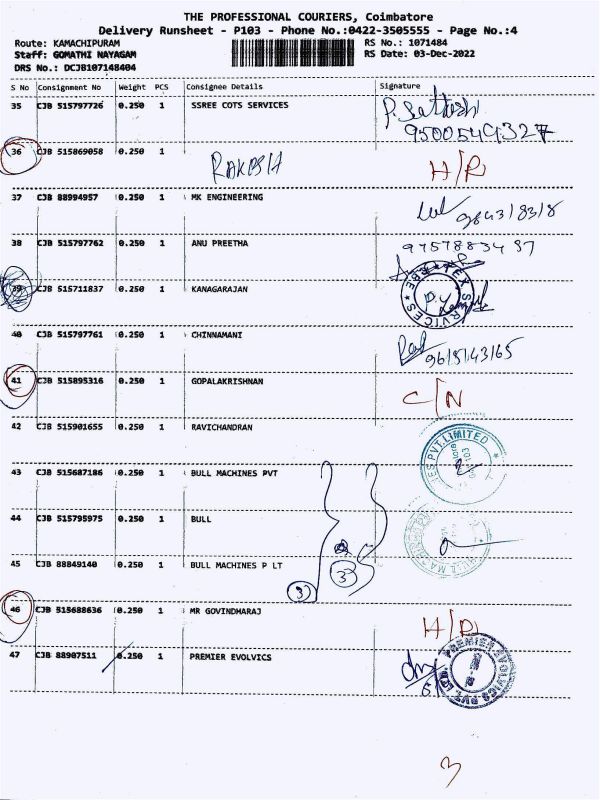 THE PROFESSIONAL COURIERS, Coimbatore
Delivery Runsheet - P103 - Phone No.:0422-3505555 - Page No.:4
Route: KAMACHIPURAM
RS No.: 1071484
Staff: GOMATHI NAYAGAM
RS Date: 03-Dec-2022
DRS No.: DCJB107148404
S No Consignment No Weight PCS Consignee Details Signature
35 CJB 515797726 0.250 1 SSREE COTS SERVICES P. Sathosh
9500549327
36 CJB 515869058 0.250 1 RAKESH H/R
37 CJB 88994957 0.250 1 MK ENGINEERING
38 CJB 515797762 0.250 1 ANU PREETHA
39 CJB 515711837 0.250 1 KANAGARAJAN
SERVICES
40 CJB 515797761 0.250 1 CHINNAMANI
41 CJB 515895316 0.250 1 GOPALAKRISHNAN C/N
42 CJB 515901655 0.250 1 RAVICHANDRAN
PVT.LIMITED
43 CJB 515687186 0.250 1 BULL MACHINES PVT
44 CJB 515795975 0.250 1 BULL
45 CJB 88849140 0.250 1 BULL MACHINES P LT
3 3
46 CJB 515688636 0.250 1 MR GOVINDHARAJ H/R
47 CJB 88907511 0.250 1 PREMIER EVOLVICS
PREMIER EVOLVICS PVT. LTD.
3